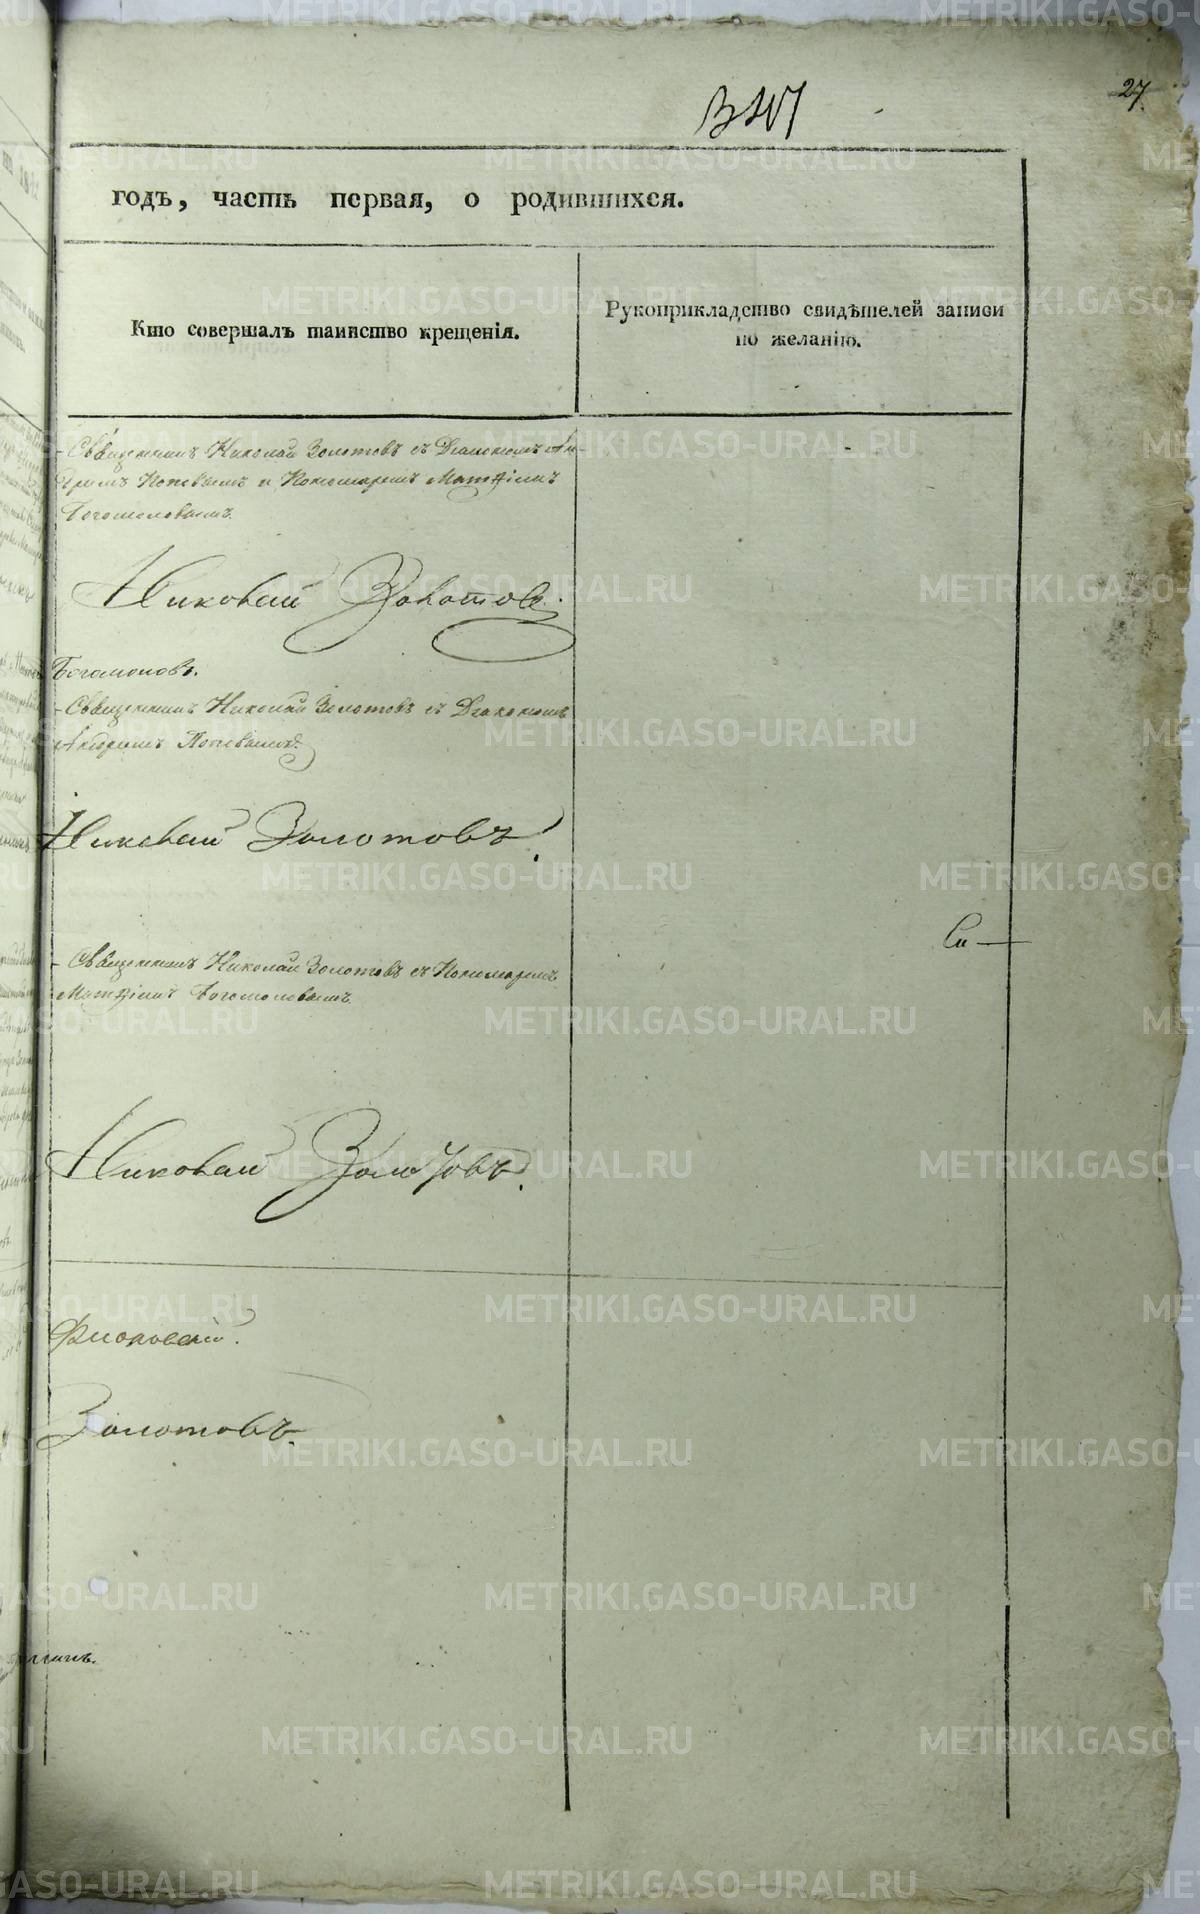 27.
годъ, часть первая, о родившихся.
Кто совершалъ таинство крещенія.
Рукоприкладство свидѣтелей записи
по желанію.
Священникъ Николай Золотовъ съ Діакономъ Ан-
дреемъ Поповымъ и Пономаремъ Матѳіемъ
Богомоловымъ.
Николай Золотовъ.
Богомоловъ.
Священникъ Николай Золотовъ съ Діакономъ
Андреемъ Поповымъ.
Николай Золотовъ.
Священникъ Николай Золотовъ съ Пономаремъ
Матѳіемъ Богомоловымъ.
Николай Золотовъ.
Золотовъ.
METRIKI.GASO-URAL.RU